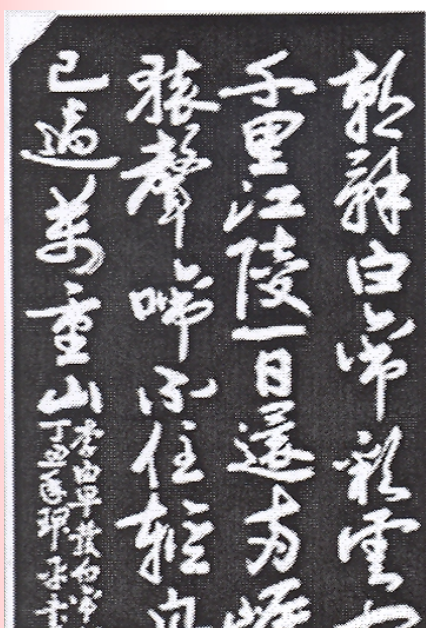 朝辭白帝彩雲
千里江陵一日還兩
猿聲啼不住輕
已過萬重山
李白早發白帝
丁